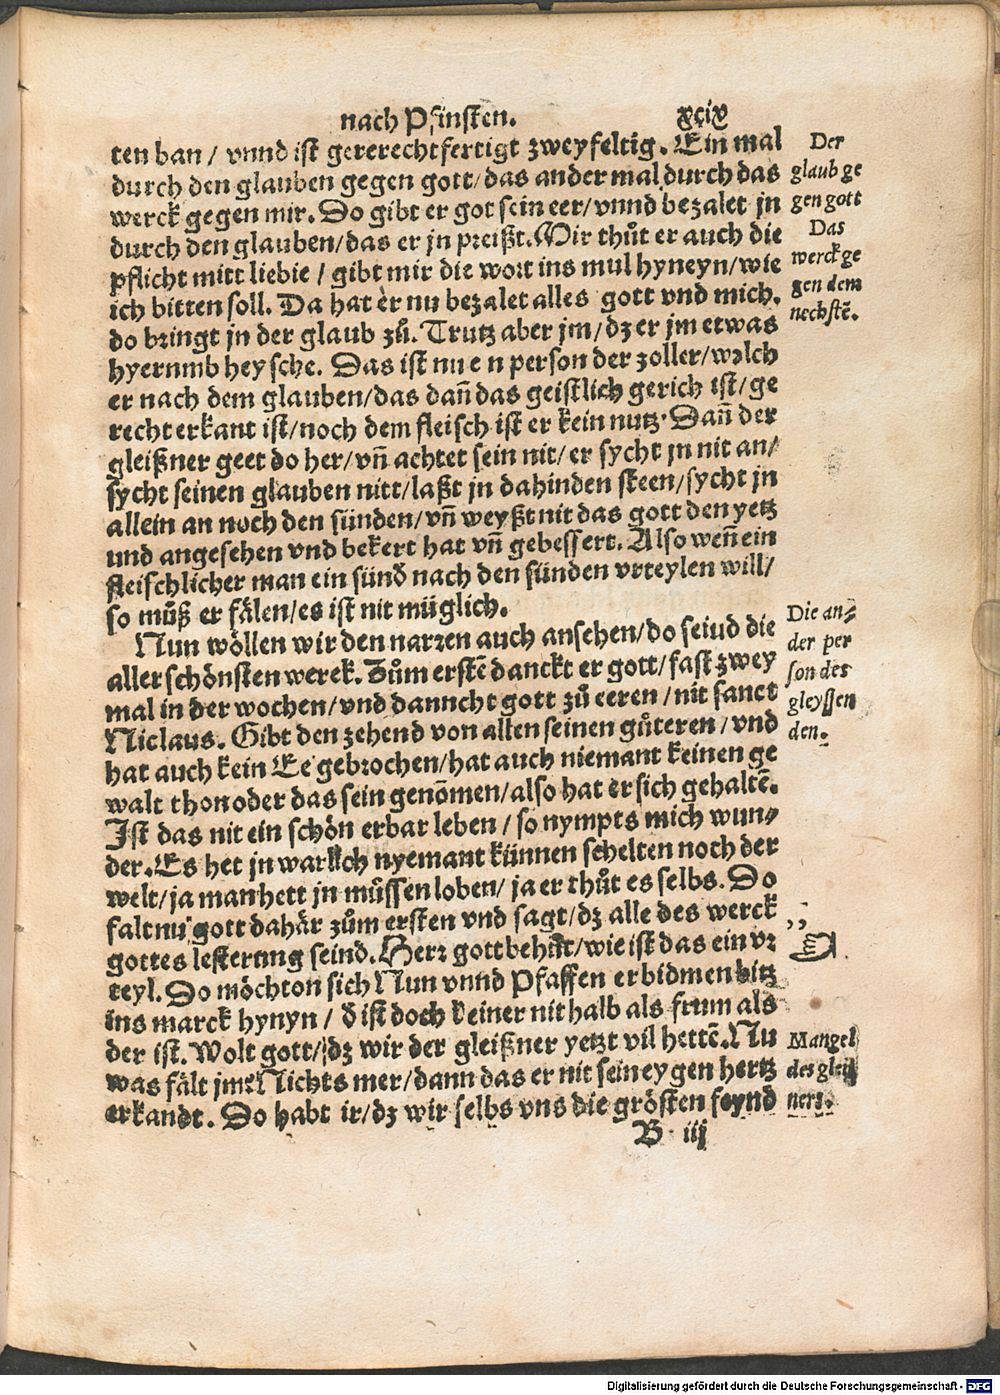 nach Pfinsten. xcix
ten ban / vnnd ist gererechtfertigt zweyfeltig. Ein mal
durch den glauben gegen gott/das ander mal durch das
werck gegen mir. So gibt er got sein eer/vnnd bezalet jn
durch den glauben/das er jn preißt. Mir thůt er auch die
pflicht mitt liebie / gibt mir die wort ins mul hyneyn/wie
ich bitten soll. Da hat er nu bezalet alles gott vnd mich.
do bringt jn der glaub zů. Trutz aber jm/dz er jm etwas
hyerumb heysche. Das ist nu e n person der zoller/welch
er nach dem glauben/das dañ das geistlich gerich ist/ge
recht erkant ist/noch dem fleisch ist er kein nutz. Dañ der
gleißner geet do her/vñ achtet sein nit/er sycht jn nit an/
sycht seinen glauben nitt/laßt jn dahinden steen/sycht jn
allein an noch den sünden/vñ weyßt nit das gott den yetz
und angesehen vnd bekert hat vñ gebessert. Also weñ ein
fleischlicher man ein sünd nach den sünden vrteylen will/
so můß er fälen/es ist nit müglich.
Nun wöllen wir den narren auch ansehen/do seiud die
aller schönsten werek. Zům erstē danckt er gott/fast zwey
mal in der wochen/vnd danncht gott zů eeren/nit sanct
Niclaus. Gibt den zehend von allen seinen gůteren/vnd
hat auch kein Ee gebrochen/hat auch niemant keinen ge
walt thon oder das sein genōmen/also hat er sich gehaltē.
Ist das nit ein schön erbar leben / so nympts mich wun/
der. Es het jn warlich nyemant künnen schelten noch der
welt/ja man hett jn můssen loben/ja er thůt es selbs. Do
falt nu gott dahär zům ersten vnd sagt/dz alle des werck
gottes lesterung seind. Herr gott behůt/wie ist das ein vr
teyl. Do möchton sich Nun vnnd Pfaffen erbidmen bitz
ins marck hynyn / d ist doch keiner nit halb als frum als
der ist. Wolt gott/dz wir der gleißner yetzt vil hettē. Nu
was fält jm? Nichts mer/dann das er nit sein eygen hertz
erkandt. Do habt ir/dz wir selbs vns die grösten feynd
B iij
Der
glaub ge
gen gott
Das
werck ge
gen dem
nechstē.
Die an/
der per
son des
gleyssen
den.
Mangel
des gleiß
ners.
Digitalisierung gefördert durch die Deutsche Forschungsgemeinschaft - DFG